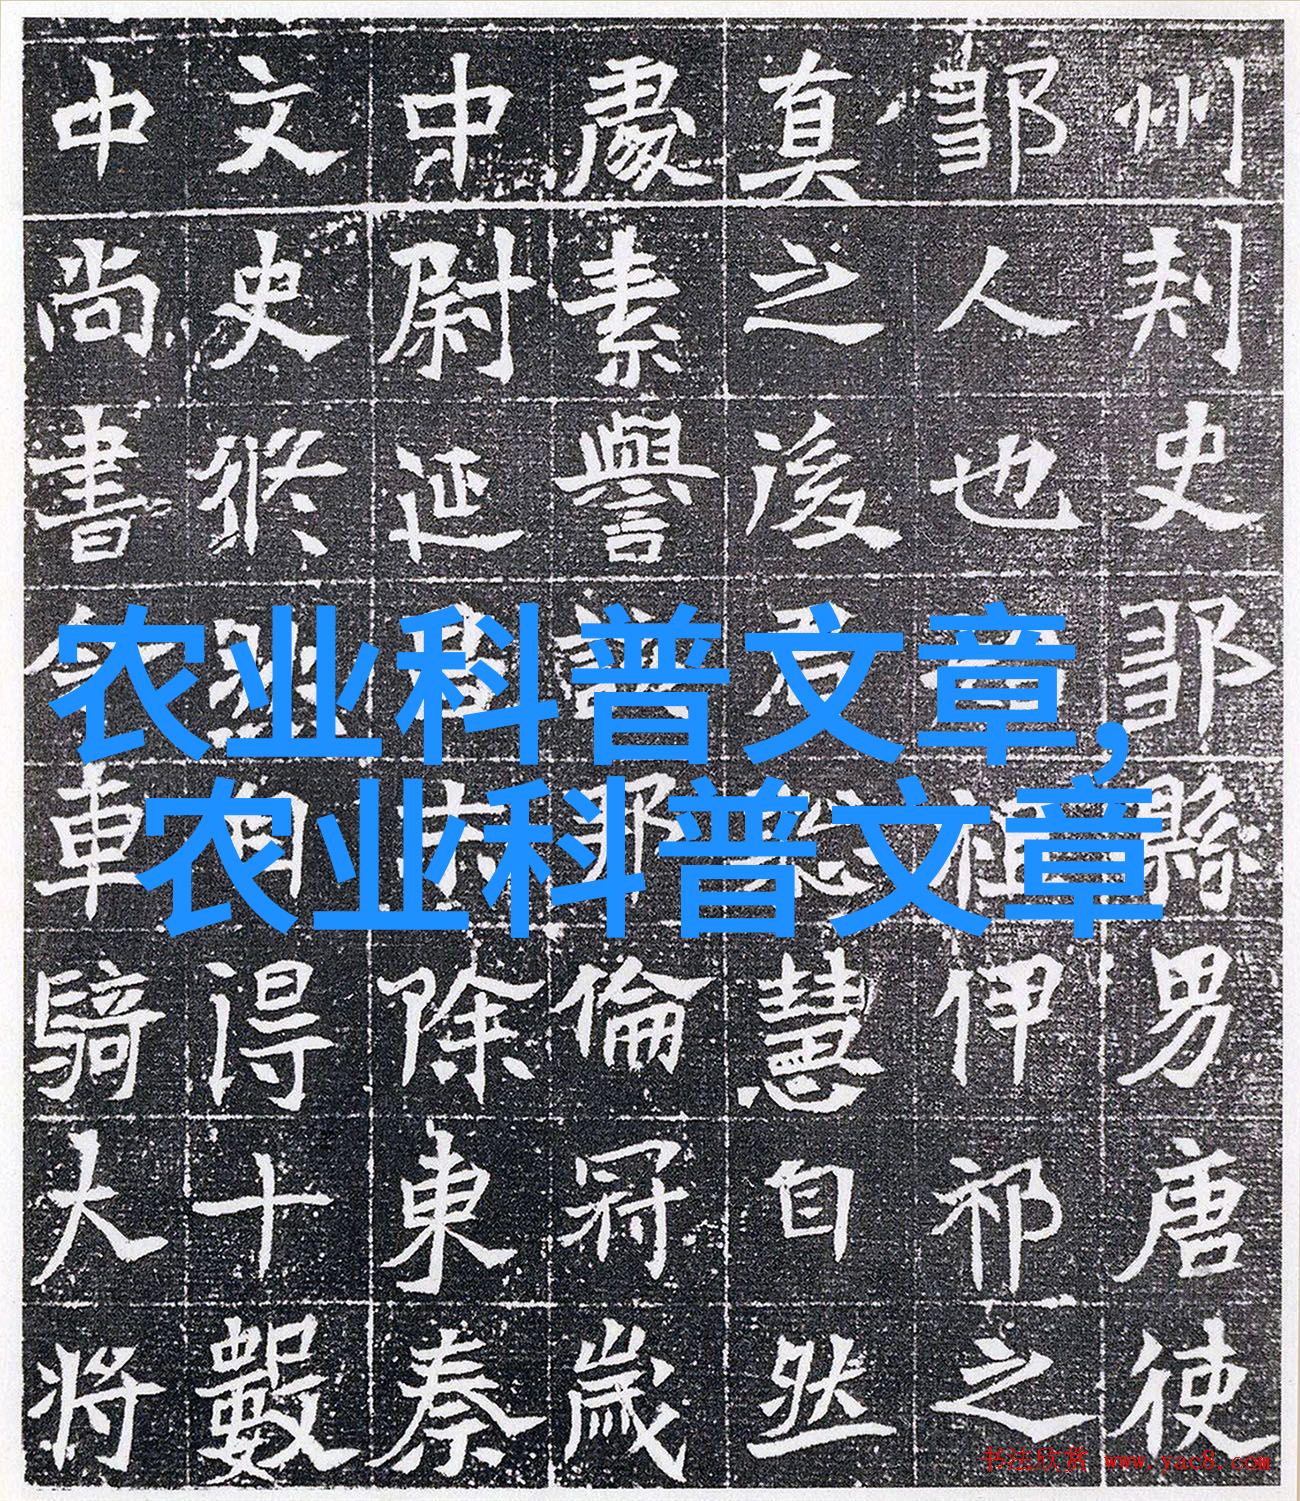 州刾史鄒縣男唐使
鄒人也祖伊祁之
真之後君慧自然
處素譽倫冠歲
中尉延除東秦
文史得十數
中尚書令車騎大將
农业科普文章,
农业科普文章
书法欣赏 www.yac8.com